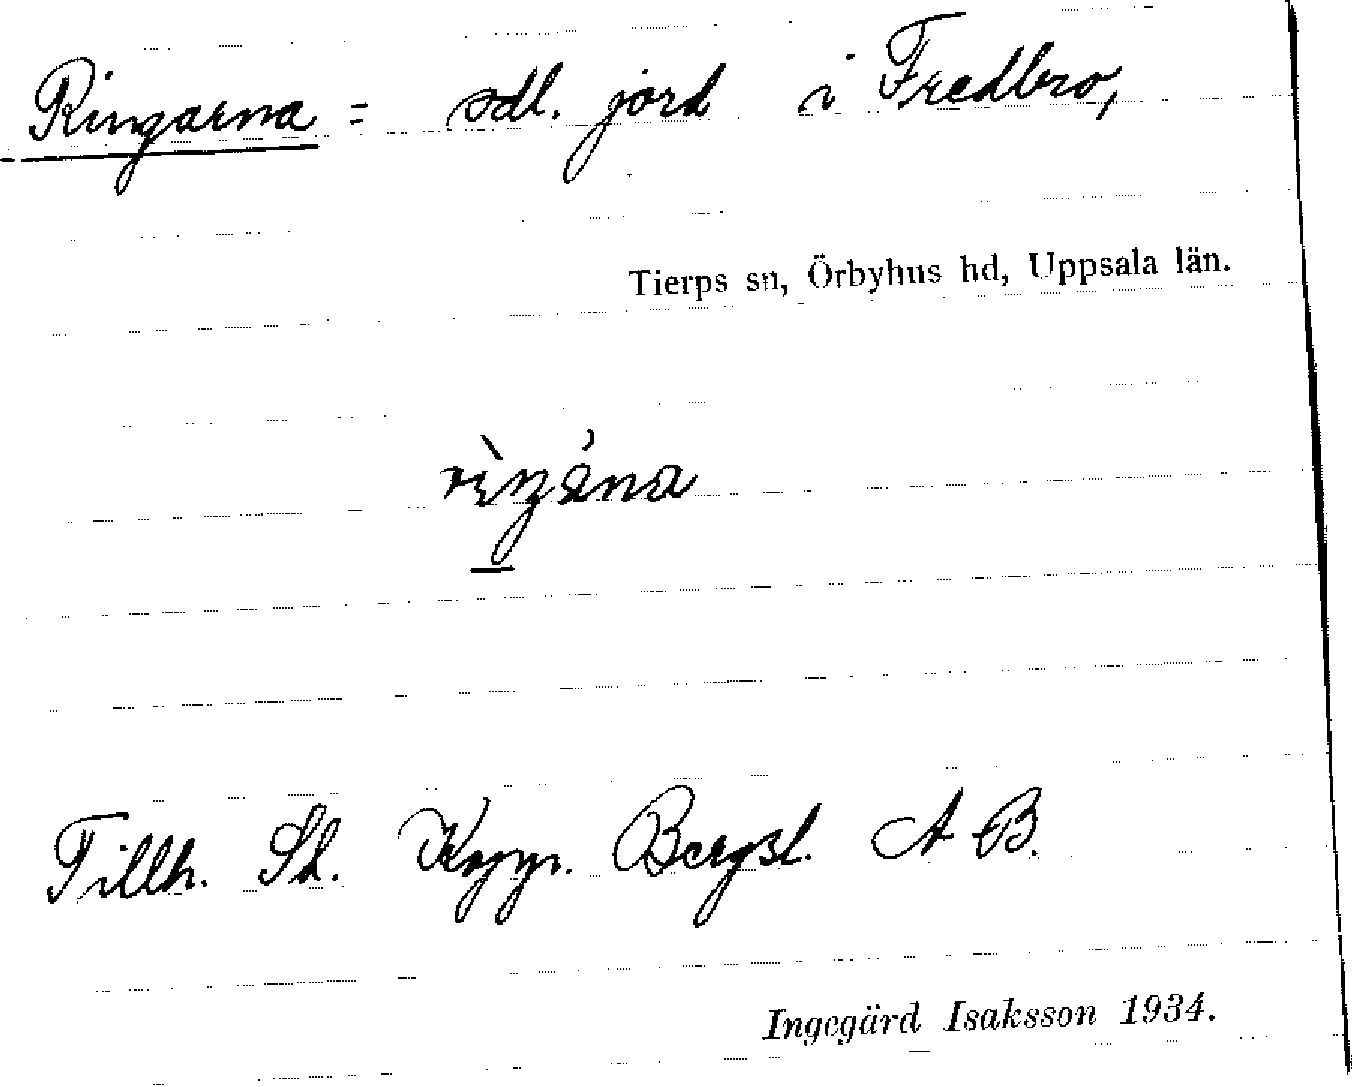 Ringarna = odl. jord i Fredbro,
Tierps sn, Örbyhus hd, Uppsala län.
rìŋána
Tillh. St. Koppr. Bergsl. A B.
Ingegärd Isaksson 1934.